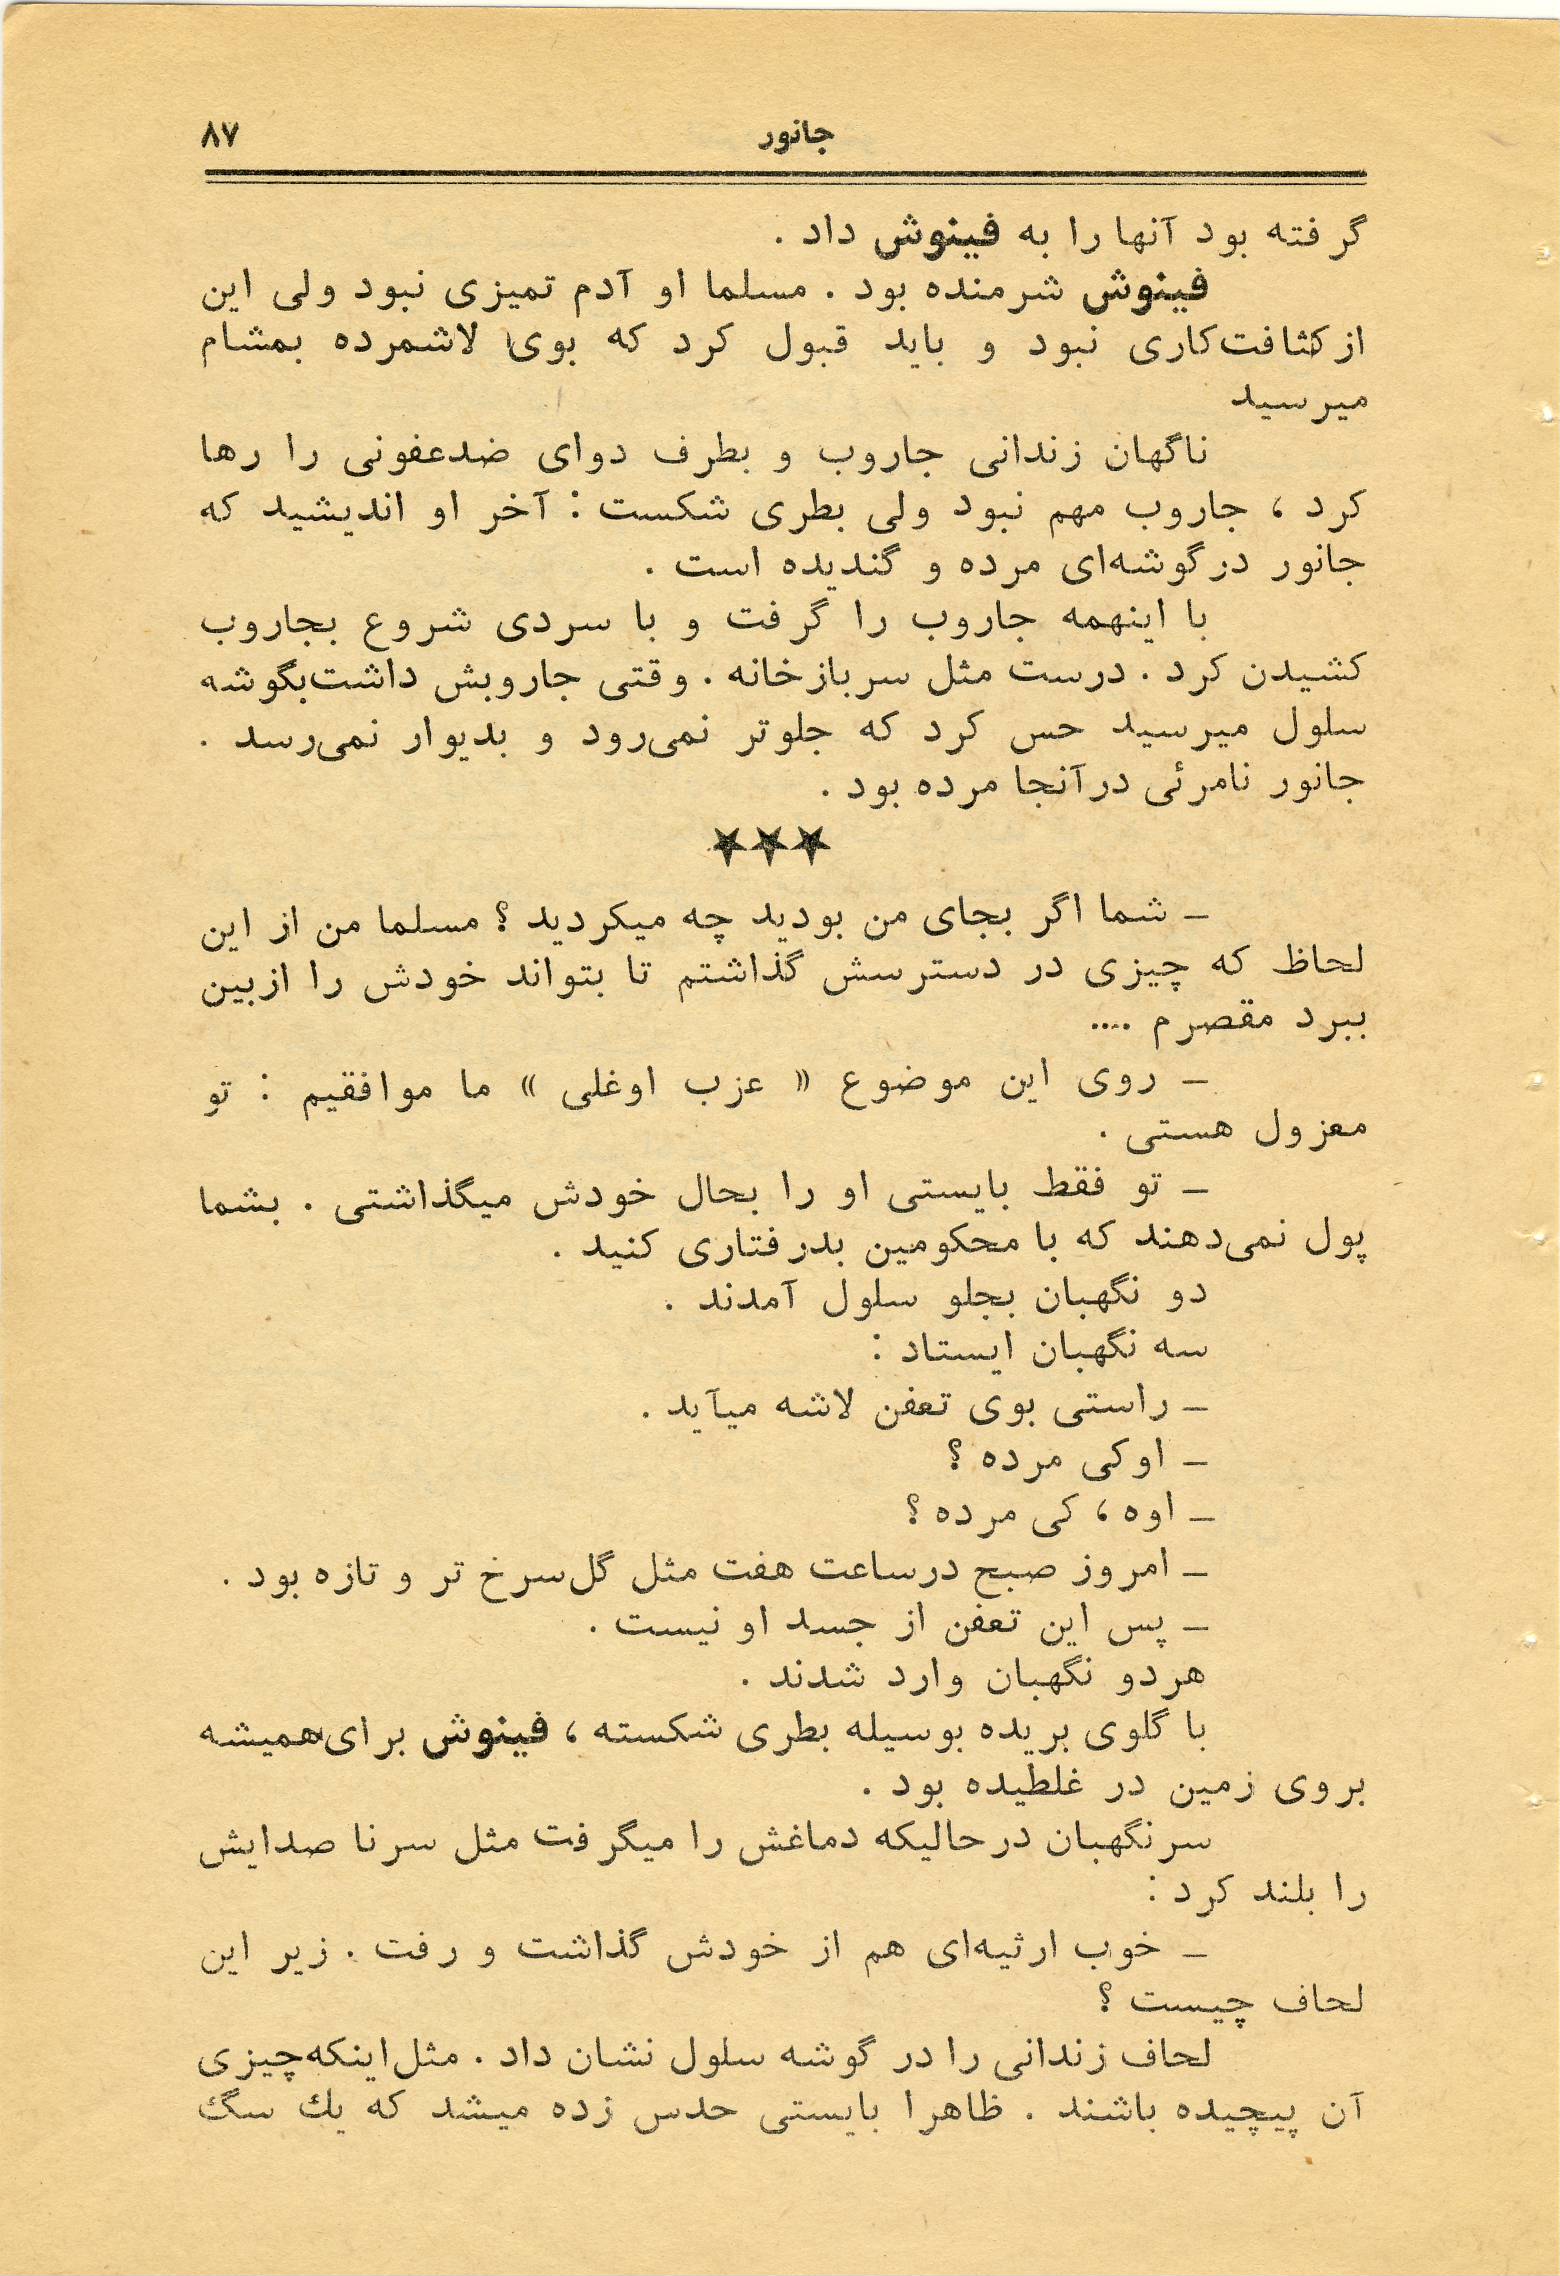 جانور ۸۷
گرفته بود آنها را به فینوش داد .
فینوش شرمنده بود . مسلما او آدم تمیزی نبود ولی این
از کثافت‌کاری نبود و باید قبول کرد که بوی لاشمرده بمشام
میرسید
ناگهان زندانی جاروب و بطرف دوای ضدعفونی را رها
کرد ، جاروب مهم نبود ولی بطری شکست : آخر او اندیشید که
جانور در گوشه‌ای مرده و گندیده است .
با اینهمه جاروب را گرفت و با سردی شروع بجاروب
کشیدن کرد . درست مثل سربازخانه . وقتی جاروبش داشت بگوشه
سلول میرسید حس کرد که جلوتر نمی‌رود و بدیوار نمی‌رسد .
جانور نامرئی در آنجا مرده بود .
★★★
ـ شما اگر بجای من بودید چه میکردید ؟ مسلما من از این
لحاظ که چیزی در دسترسش گذاشتم تا بتواند خودش را از بین
ببرد مقصرم ....
ـ روی این موضوع « عزب اوغلی » ما موافقیم : تو
معزول هستی .
ـ تو فقط بایستی او را بحال خودش میگذاشتی . بشما
پول نمی‌دهند که با محکومین بدرفتاری کنید .
دو نگهبان بجلو سلول آمدند .
سه نگهبان ایستاد :
ـ راستی بوی تعفن لاشه میآید .
ـ او کی مرده ؟
ـ اوه ، کی مرده ؟
ـ امروز صبح در ساعت هفت مثل گل‌سرخ تر و تازه بود .
ـ پس این تعفن از جسد او نیست .
هر دو نگهبان وارد شدند .
با گلوی بریده بوسیله بطری شکسته ، فینوش برای همیشه
بروی زمین در غلطیده بود .
سرنگهبان در حالیکه دماغش را میگرفت مثل سرنا صدایش
را بلند کرد :
ـ خوب ارثیه‌ای هم از خودش گذاشت و رفت . زیر این
لحاف چیست ؟
لحاف زندانی را در گوشه سلول نشان داد . مثل اینکه چیزی
آن پیچیده باشند . ظاهرا بایستی حدس زده میشد که یك سگ